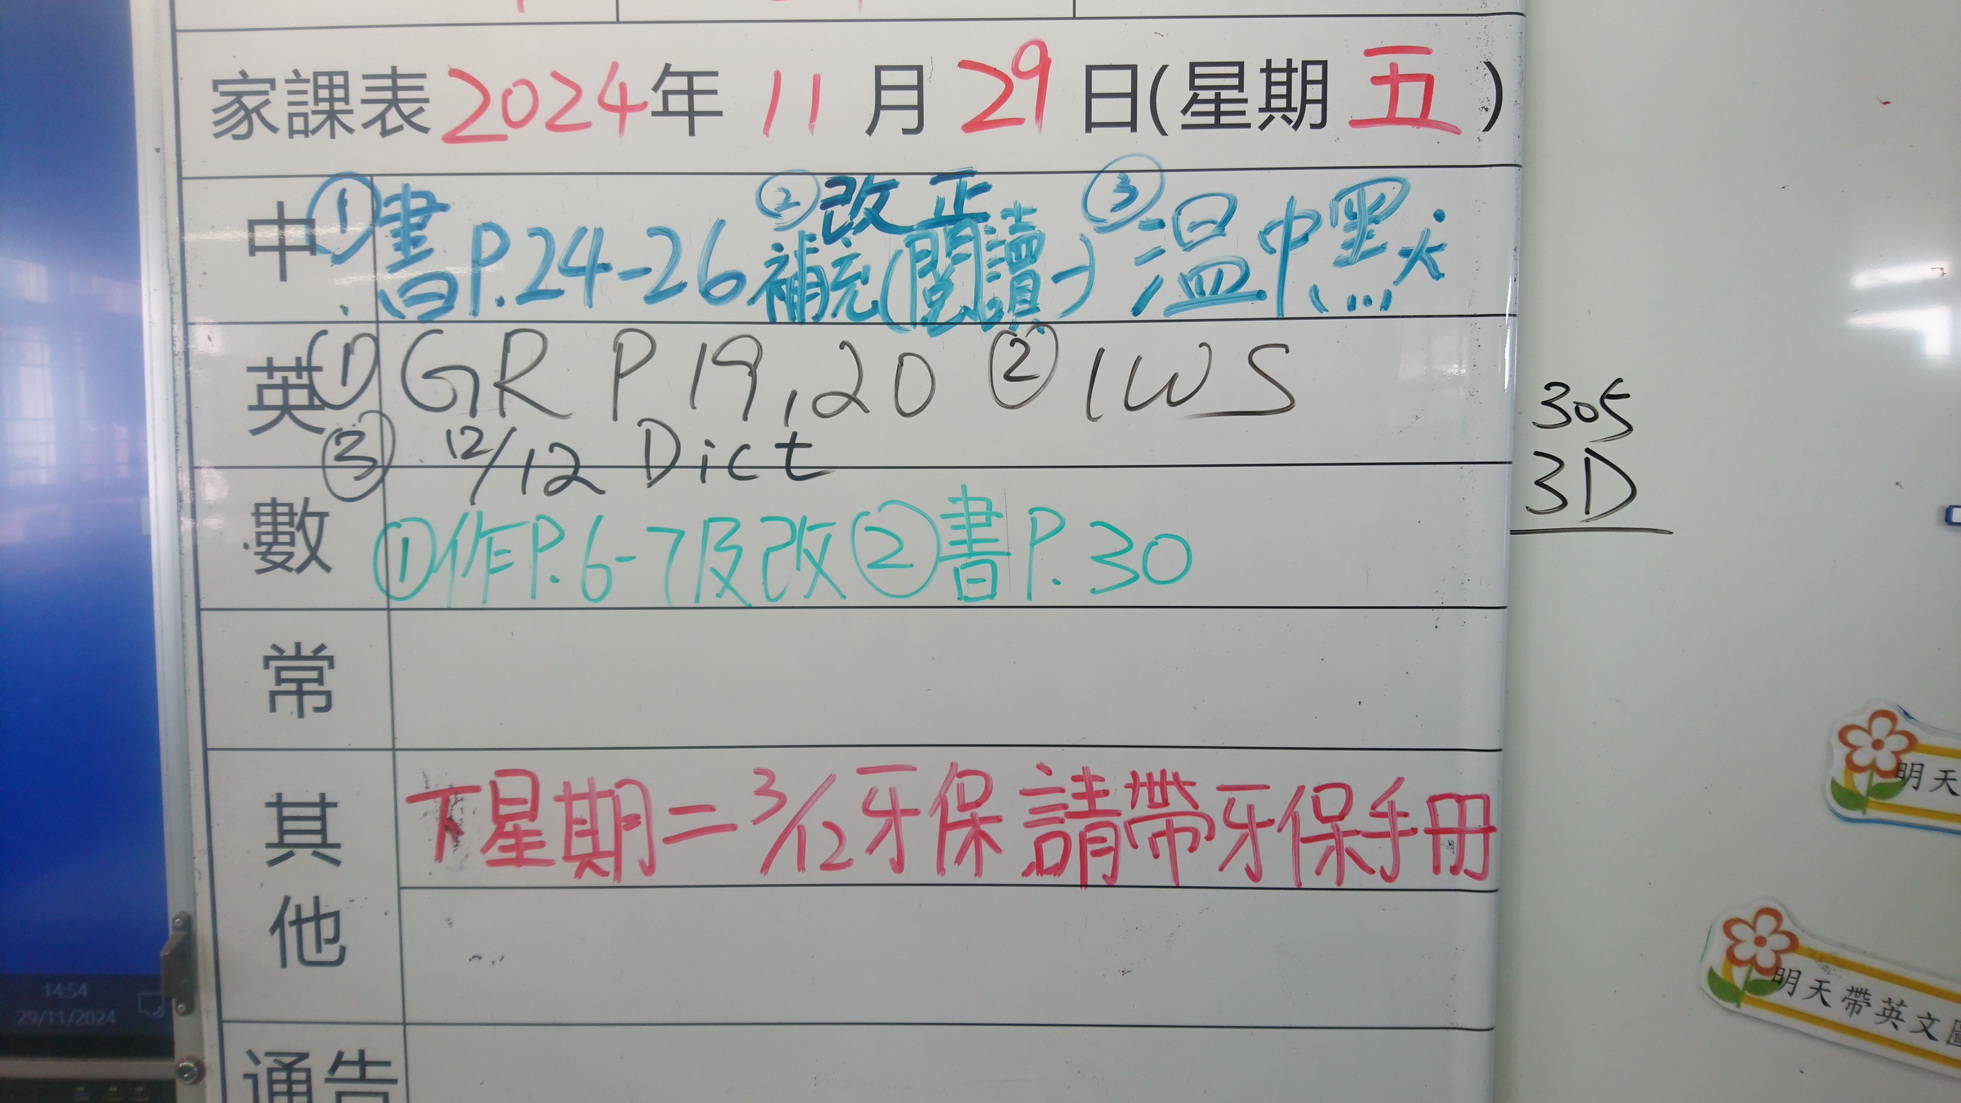 家課表 2024年 11 月 29 日(星期 五 )
中 ①書P.24-26 ②改正 ③温中默
補充(閱讀一)
英 ① GR P 19,20 ② IWS
③ 12/12 Dict
數 ①作P.6-7及改 ②書P.30
常
其他 下星期二 3/12 牙保 請帶牙保手冊
通告
305
3D
明天
明天帶英文
14:54
29/11/2024